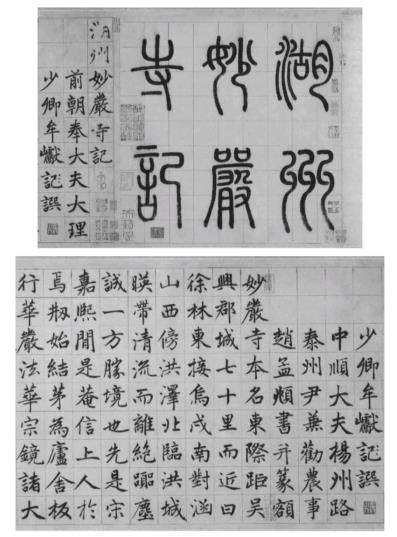 湖州
妙嚴
寺記
湖州妙嚴寺記
前朝奉大夫大理
少卿牟巘記譔
少卿牟巘記譔
中順大夫楊州路
泰州尹兼勸農事
趙孟頫書并篆額
妙嚴寺本名東際距吳
興郡城七十里而近曰
徐林東接烏戍南對涵
山西傍洪澤北臨洪城
暎帶清流而離絕塵
誠一方勝境也先是宋
嘉熙間是菴信上人於
焉剏始結茅為廬舍板
行華嚴法華宗鏡諸大